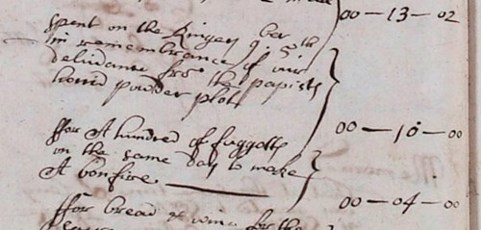 00 — 13 — 02
spent on the Ringers 9ber 5th
in remembrance of our
deliverance from the papists
horrid powder plott
00 — 10 — 00
ffor A hundred of faggotts
on the same day to make
A bonfire
00 — 04 — 00
ffor bread & wine for the